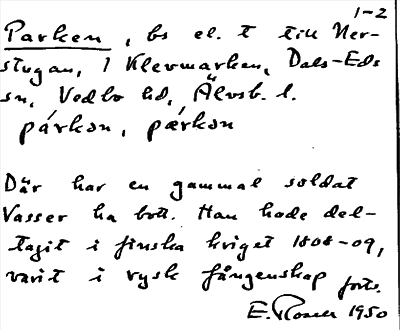 1-2
Parken, bs el. t till Ner-
stugan, 1 Klevmarken, Dals-Eds
sn, Vedbo hd, Älvsb. l.
párkən, pærkən
Där har en gammal soldat
Vasser ha bott. Han hade del-
tagit i finska kriget 1808-09,
varit i rysk fångenskap forts.
E. Rosell 1950